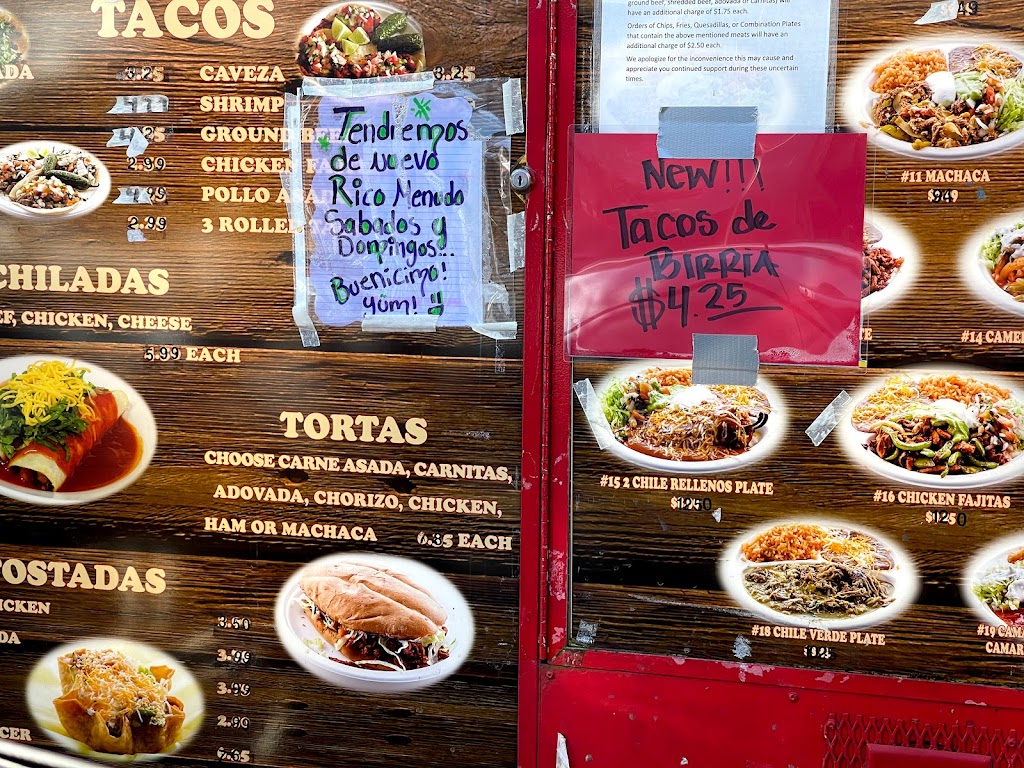 TACOS
ADA
3.25
CAVEZA
3.25
SHRIMP
GROUND BEE
2.99
CHICKEN FA
POLLO ASA
2.99
3 ROLLE
Tendremos
de nuevo
Rico Menudo
Sabados y
Domingos...
Buenicimo!
yúm!
CHILADAS
EF, CHICKEN, CHEESE
5.99 EACH
TORTAS
CHOOSE CARNE ASADA, CARNITAS,
ADOVADA, CHORIZO, CHICKEN,
HAM OR MACHACA
6.85 EACH
TOSTADAS
ICKEN
3.50
ADA
3.99
2.99
CER
ground beef, shredded beef, adovada or carnitas) will
have an additional charge of $1.75 each.
Orders of Chips, Fries, Quesadillas, or Combination Plates
that contain the above mentioned meats will have an
additional charge of $2.50 each.
We apologize for the inconvenience this may cause and
appreciate you continued support during these uncertain
times.
New!!!
Tacos de
BIRRIA
$4.25
#11 MACHACA
$949
#14 CAME
#15 2 CHILE RELLENOS PLATE
$1250
#16 CHICKEN FAJITAS
$1250
#18 CHILE VERDE PLATE
#19 CAMA
CAMAR